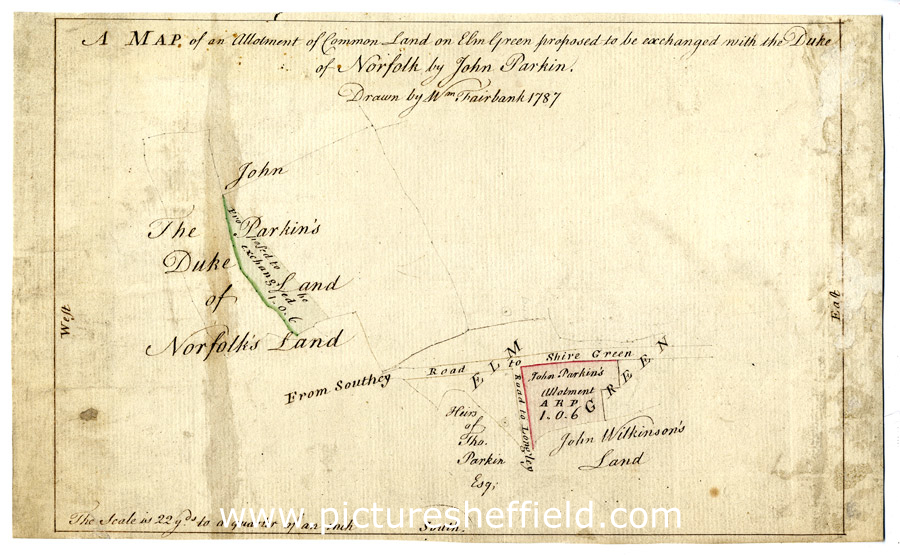 A MAP of an Allotment of Common Land on Elm Green proposed to be exchanged with the Duke
of Norfolk by John Parkin.
Drawn by Wm Fairbank 1787
John
Parkin's
Land
The
Duke
of
Norfolk's Land
proposed to
be exchanged
1..0..6
West
East
From Southey
Road to Shire Green
ELM GREEN
Road to Longley
John Parkin's
Allotment
A R P
1..0..6
Heirs
of
Tho.
Parkin
Esq;
John Wilkinson's
Land
The Scale is 22 yds to a quarter of an inch
South
www.picturesheffield.com